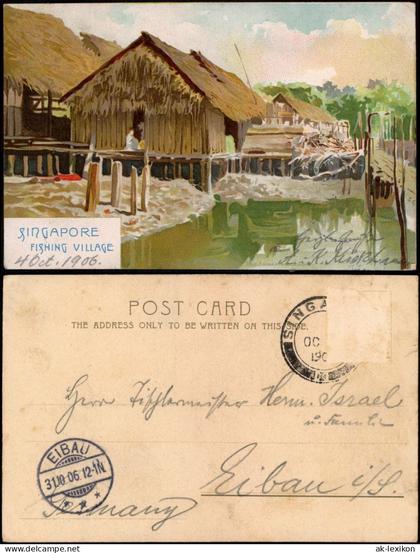 SINGAPORE
FISHING VILLAGE
4 Oct. 1906.
POST CARD
THE ADDRESS ONLY TO BE WRITTEN ON THIS SIDE.
SINGA
OC
190
Herrn Tischlermeister Herm. Israel
u. Familie
EIBAU
31.10.06.12-1N
Eibau i/S.
Germany
www.delcampe.net
ak-lexikon